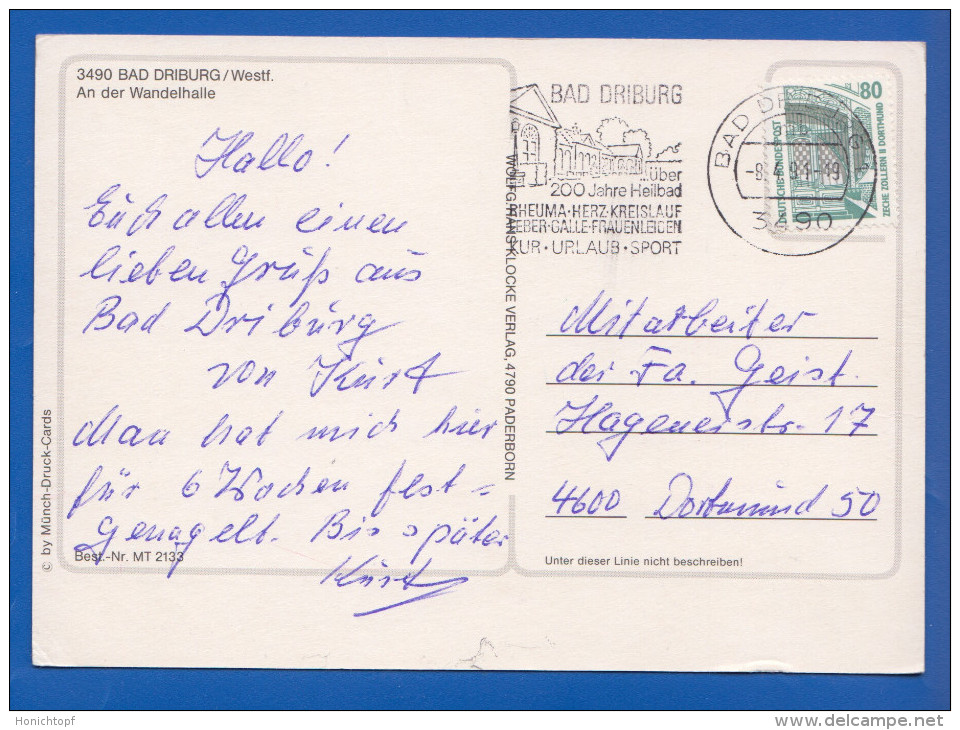 3490 BAD DRIBURG/Westf.
An der Wandelhalle
Hallo!
Euch allen einen
lieben Gruß aus
Bad Driburg
von Kurt
Man hat mich hier
für 6 Wochen fest=
genagelt. Bis später
Kurt
Best.-Nr. MT 2133
© by Münch-Druck-Cards
WOLFG. HANS KLOCKE VERLAG, 4790 PADERBORN
BAD DRIBURG
über
200 Jahre Heilbad
RHEUMA·HERZ·KREISLAUF
LEBER·GALLE·FRAUENLEIDEN
KUR·URLAUB·SPORT
BAD DRIBURG
3490
80
DEUTSCHE BUNDESPOST
ZECHE ZOLLERN II DORTMUND
Mitarbeiter
der Fa. Geist.
Hagenerstr. 17
4600 Dortmund 50
Unter dieser Linie nicht beschreiben!
Honichtopf
delcampe.net